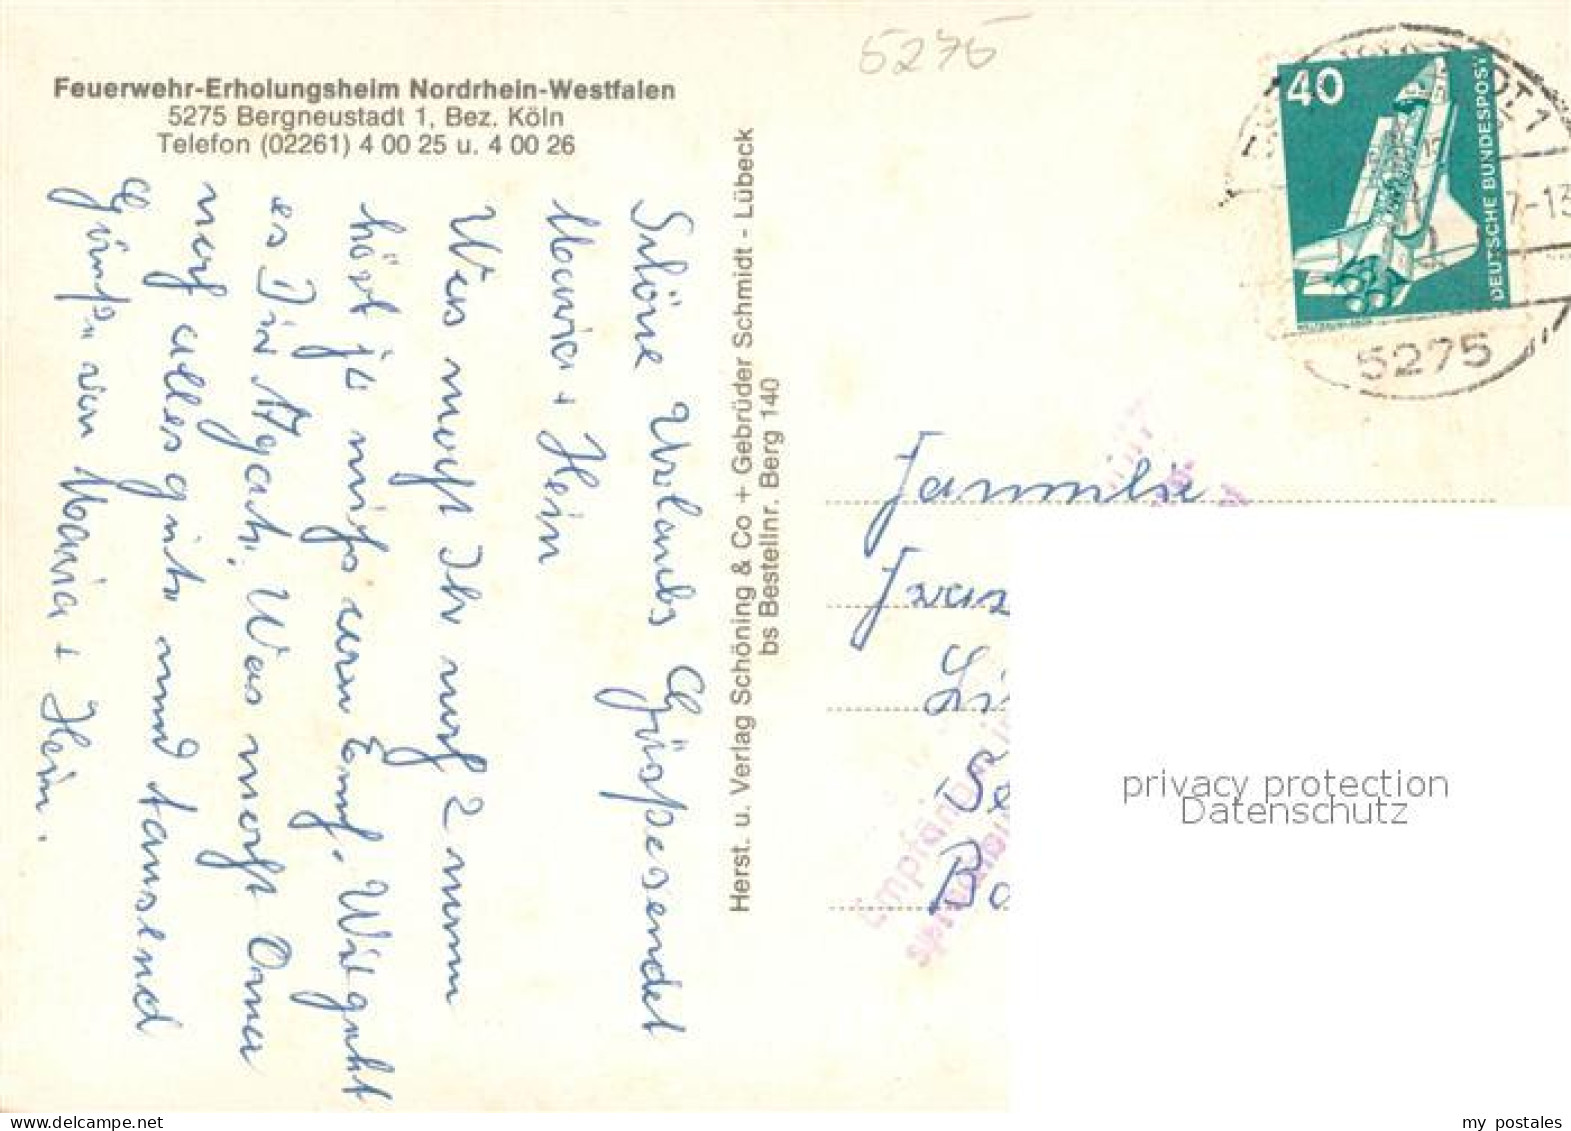 5275
Feuerwehr-Erholungsheim Nordrhein-Westfalen
5275 Bergneustadt 1, Bez. Köln
Telefon (02261) 4 00 25 u. 4 00 26
Schöne Urlaubs Grüße sendet
Maria + Hein
Was macht Ihr 2
hört ja nichts Euch. Wie geht
es Dir Agath. Was macht Oma
noch alles gute und tausend
Grüße von Maria + Hein.
Herst. u. Verlag Schöning & Co + Gebrüder Schmidt - Lübeck
bs Bestellnr. Berg 140
40
DEUTSCHE BUNDESPOST
7-13
5275
Fammilie
Li
Se
Bo
privacy protection
Datenschutz
delcampe.net
my_postales